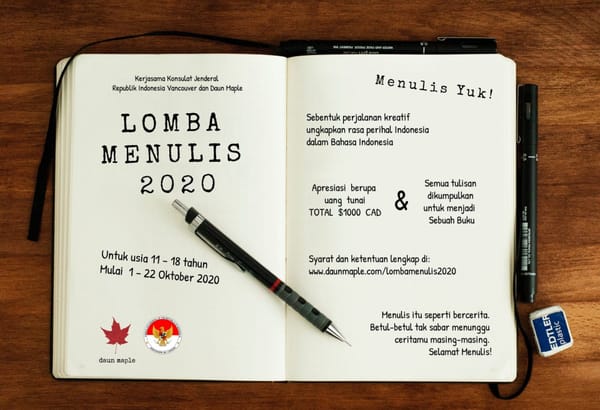 Kerjasama Konsulat Jenderal
Republik Indonesia Vancouver dan Daun Maple
LOMBA
MENULIS
2020
Untuk usia 11 - 18 tahun
Mulai 1 - 22 Oktober 2020
daun maple
Menulis Yuk!
Sebentuk perjalanan kreatif
ungkapkan rasa perihal Indonesia
dalam Bahasa Indonesia
Apresiasi berupa
uang tunai
TOTAL $1000 CAD
&
Semua tulisan
dikumpulkan
untuk menjadi
Sebuah Buku
Syarat dan ketentuan lengkap di:
www.daunmaple.com/lombamenulis2020
Menulis itu seperti bercerita.
Betul-betul tak sabar menunggu
ceritamu masing-masing.
Selamat Menulis!
EDTLER
plastic